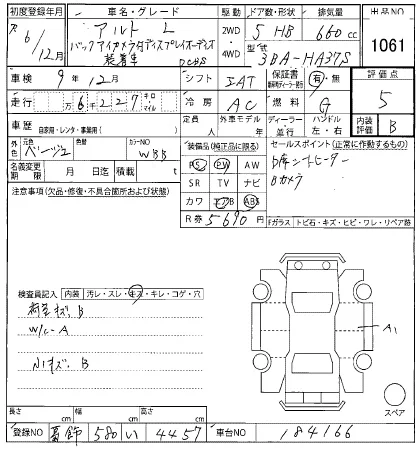 初度登録年月 車名・グレード 駆動 ドア数・形状 排気量 出品NO
R6/12月 アルト L 2WD 4WD 5 HB 660cc 1061
バックアイカメラ付ディスプレイオーディオ装着車 DCBS 型式 3BA-HA37S
車検 9年12月 シフト IAT 保証書 有・無 評価点
走行 万6千227 キロ マイル 冷房 AC 燃料 G 5
車歴 自家用・レンタ・事業用( ) 定員 人 外車モデル 年 ディーラー 並行 ハンドル 左・右 内装評価 B
外色 元色 ベージュ 色替 カラーNO WBB 装備品(純正品に限る) セールスポイント(正常に作動するもの)
名義変更期限 月 日迄 積載量 t PS PW AW D席シートヒーター
注意事項(欠品・修復・不具合箇所および状態) SR TV ナビ Bカメラ
カワ エアB ABS
R券 5690円 Fガラス トビ石・キズ・ヒビ・ワレ・リペア跡
検査員記入 内装 汚レ・スレ・キズ・キレ・コゲ・穴
荷室キズ B
W/C-A A1
小キズ B
スペア
長さ cm 幅 cm 高さ cm
登録NO 葛飾 580 い 4457 車台NO 184166